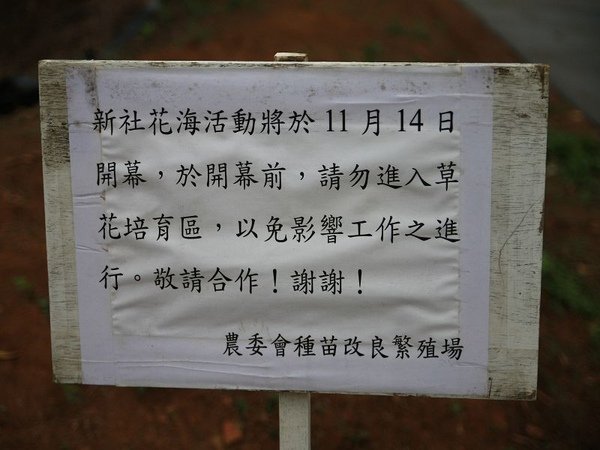 新社花海活動將於 11 月 14 日
開幕，於開幕前，請勿進入草
花培育區，以免影響工作之進
行。敬請合作！謝謝！
農委會種苗改良繁殖場